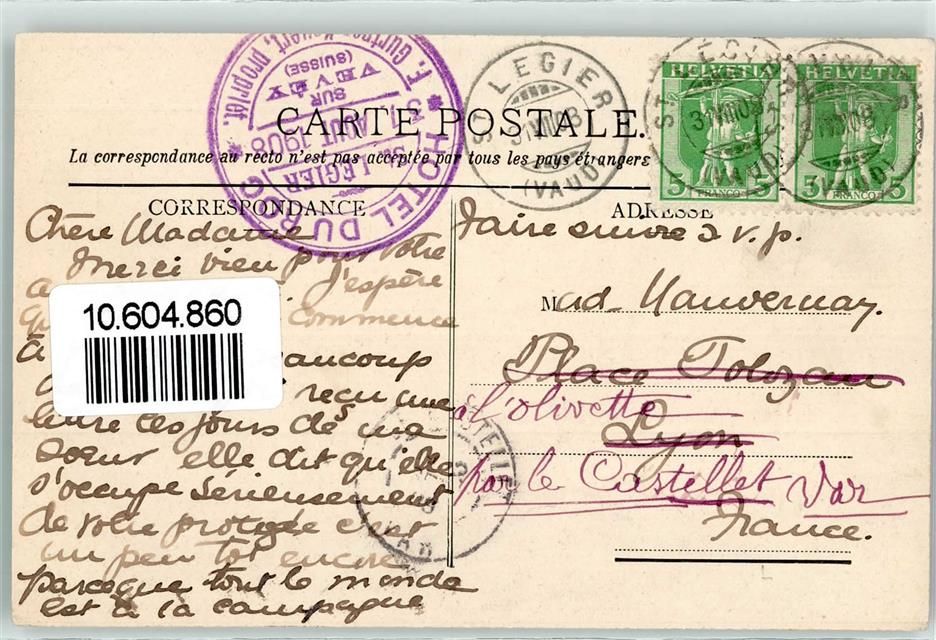 CARTE POSTALE.
La correspondance au recto n'est pas acceptée par tous les pays étrangers
HOTEL DU
F. propriét.
ST. LEGIER
SUR
VEVEY
(SUISSE)
31 AOUT 1908
ST LEGIER
(VAUD)
HELVETIA
5 5
FRANCO
HELVETIA
5 5
FRANCO
CORRESPONDANCE
Chère Madame
Merci bien pour votre
J'espère
commence
à beaucoup
reçu une
lettre ces jours de ma
Sœur elle dit qu'elle
s'occupe sérieusement
de votre protegée c'est
un peu tôt encore
parceque tout le monde
est à la campagne
10.604.860
ADRESSE
Faire suivre s. v. p.
Mad. Mauvernay.
Place Tolozan
à l'olivette
Lyon
par le Castellet Var
France.